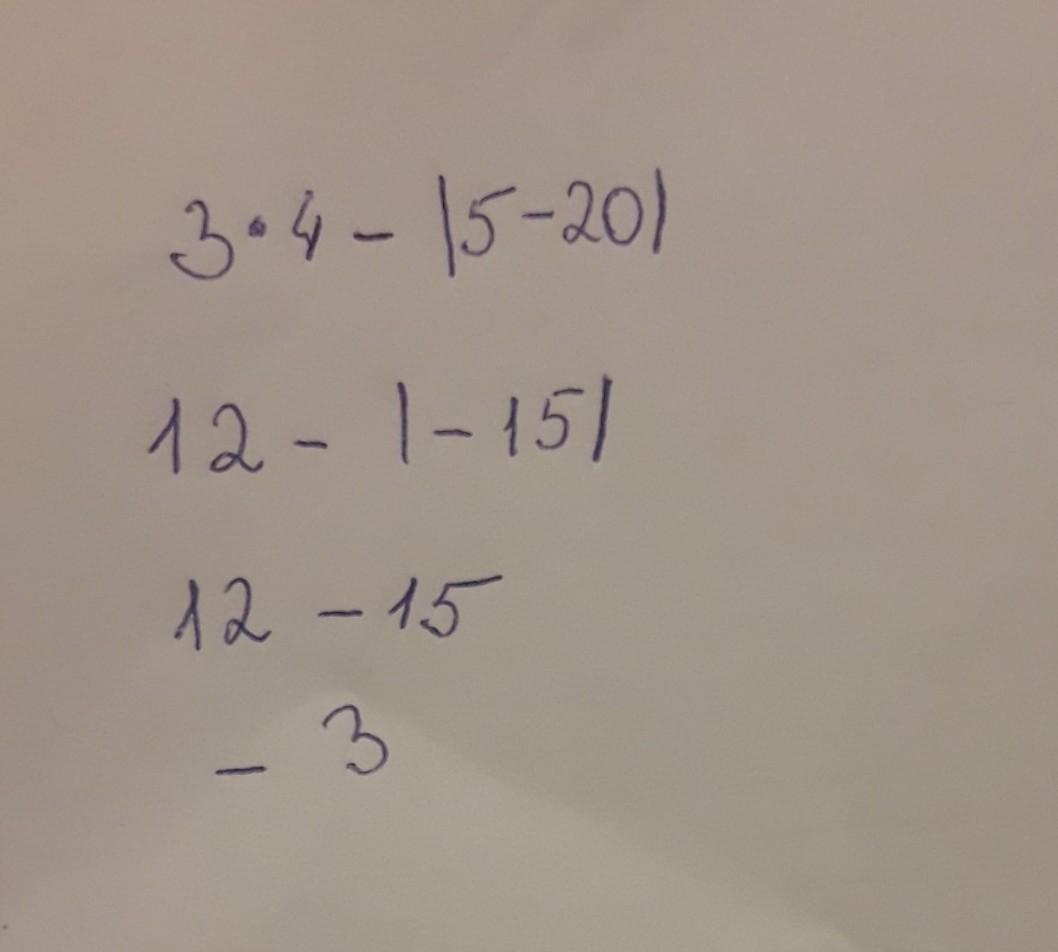 3•4 - |5-20|
12 - |-15|
12 -15
- 3